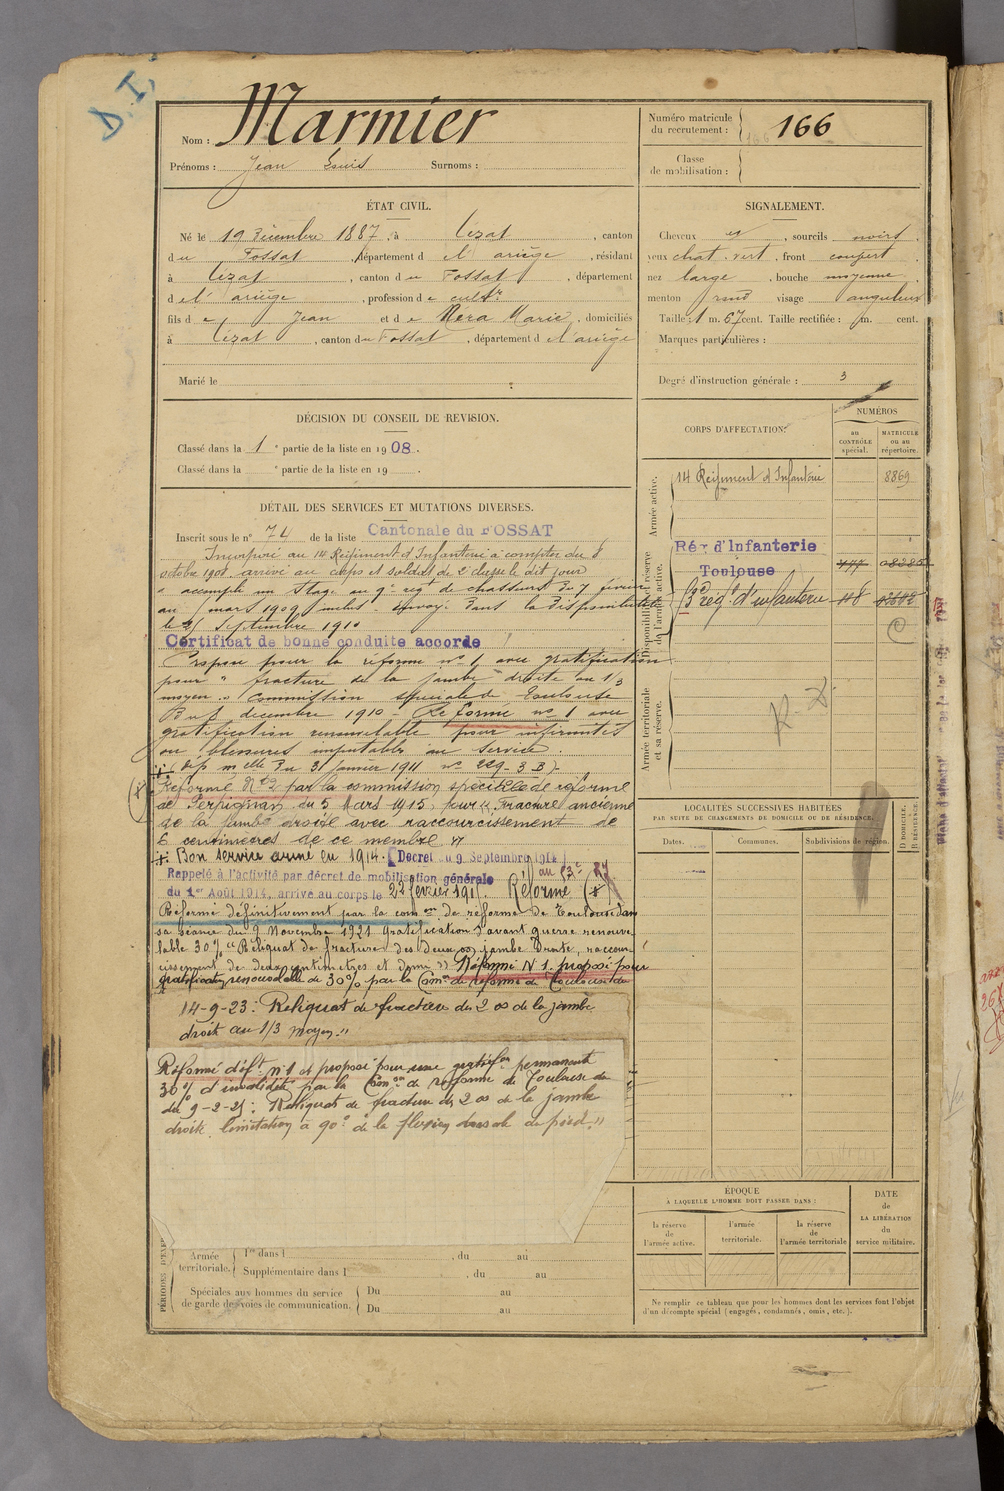 D. I.
Nom : Marmier
Prénoms : Jean Louis Surnoms :
Numéro matricule du recrutement : 166
Classe de mobilisation :
ÉTAT CIVIL.
Né le 19 Décembre 1887, à Lézat, canton
du Fossat, département de l'ariège, résidant
à Lézat, canton du Fossat, département
de l'ariège, profession de cultr
fils de Jean et de Nera Marie, domiciliés
à Lézat, canton du Fossat, département de l'ariège
Marié le
SIGNALEMENT.
Cheveux et, sourcils noirs.
yeux chat. vert, front couvert.
nez large, bouche moyenne
menton rond visage anguleux
Taille : 1 m. 67 cent. Taille rectifiée : m. cent.
Marques particulières :
Degré d'instruction générale : 3
DÉCISION DU CONSEIL DE REVISION.
Classé dans la 1e partie de la liste en 1908.
Classé dans la e partie de la liste en 19 .
DÉTAIL DES SERVICES ET MUTATIONS DIVERSES.
Inscrit sous le n° 74 de la liste Cantonale du FOSSAT
Incorporé au 14 Régiment d'Infanterie à compter du 8
octobre 1908. arrivé au corps et soldat de 2e classe le dit jour
a accompli un stage au 9e rég de chasseurs du 7 février
au mars 1909 inclus envoyé dans la disponibilité
le 25 Septembre 1910
Certificat de bonne conduite accordé
Proposé pour la réforme n° 1, avec gratification
pour " fracture de la jambe droite au 1/3
moyen " commission spéciale de Toulouse
Du décembre 1910 - Réformé n° 1 avec
gratification renouvelable pour infirmités
ou blessures imputables au service.
(Dép mlle du 31 Janvier 1911 n° 229-3-B)
Réformé N° 2 par la commission spéciale de réforme
de Perpignan du 5 Mars 1915, pour " Fracture ancienne
de la jambe droite avec raccourcissement de
centimètres de ce membre "
Bon service armé en 1914. [Décret du 9 Septembre 1914]
Rappelé à l'activité par décret de mobilisation générale
du 1er Août 1914, arrivé au corps le 22 février 1915. Réformé (*)
Réformé définitivement par la comon de réforme de Toulouse dans
sa séance du 9 Novembre 1921 Gratification d'avant guerre renouve-
lable 30% " Reliquat de fracture des deux os jambe Droite, raccour-
cissement de deux centimètres et demi " Réformé N° 1, proposé pour
gratification renouvelable de 30% par la Comon de réforme de Toulouse du
14-9-23 : Reliquat de fracture des 2 os de la jambe
droite au 1/3 moyen."
Réformé déft n° 1 et proposé pour une gratifon permanente
30% d'invalidité par la Comon de réforme de Toulouse du
du 9-2-25 : Reliquat de fracture des 2 os de la jambe
droite. limitation à 90° de la flexion dorsale du pied."
CORPS D'AFFECTATION.
NUMÉROS
au CONTRÔLE spécial.
MATRICULE ou au répertoire.
Armée active.
14 Régiment d'Infanterie 8869
Disponibilité et réserve de l'armée active.
Rég d'Infanterie
Toulouse
rég d'infanterie
Armée territoriale et sa réserve.
R. D.
LOCALITÉS SUCCESSIVES HABITÉES
PAR SUITE DE CHANGEMENTS DE DOMICILE OU DE RÉSIDENCE.
Dates.
Communes.
Subdivisions de région.
D DOMICILE.
R RÉSIDENCE.
ÉPOQUE
À LAQUELLE L'HOMME DOIT PASSER DANS :
la réserve de l'armée active.
l'armée territoriale.
la réserve de l'armée territoriale
DATE de LA LIBÉRATION du service militaire.
Ne remplir ce tableau que pour les hommes dont les services font l'objet
d'un décompte spécial (engagés, condamnés, omis, etc.).
Armée territoriale. 1re dans l , du au
Supplémentaire dans l , du au
Spéciales aux hommes du service de garde des voies de communication. Du au
Du au